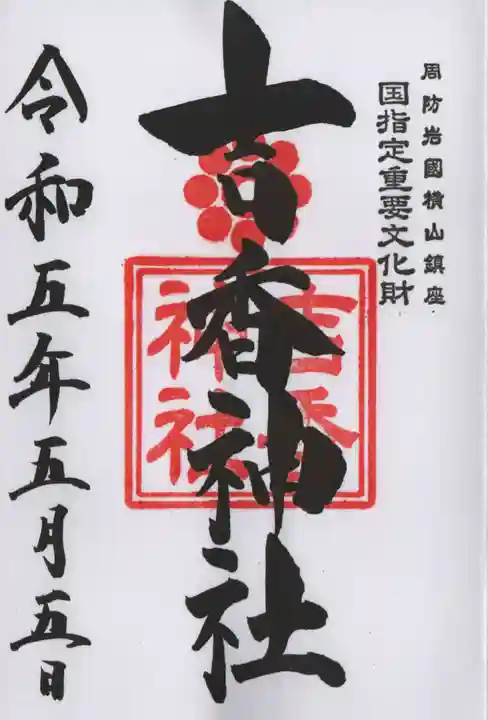 周防岩國横山鎮座
国指定重要文化財
吉香神社
吉香
神社
令和五年五月五日